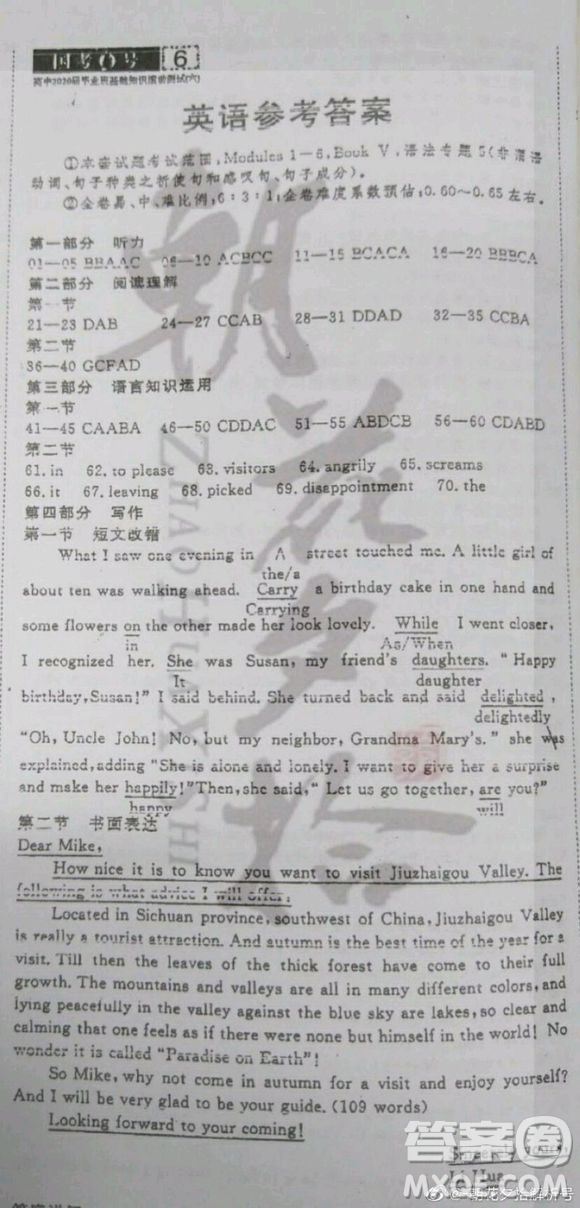 国考1号 6
高中2020届毕业班基础知识滚动测试(六)
英语参考答案
①本套试题考试范围,Modules 1-6,Book V,语法专题5(非谓语
动词、句子种类之祈使句和感叹句、句子成分)。
②全卷易、中、难比例,6:3:1;全卷难度系数预估,0.60~0.65左右。
第一部分 听力
01-05 BBAAC 06-10 ACBCC 11-15 BCACA 16-20 BBBCA
第二部分 阅读理解
第一节
21-23 DAB 24-27 CCAB 28-31 DDAD 32-35 CCBA
第二节
36-40 GCFAD
第三部分 语言知识运用
第一节
41-45 CAABA 46-50 CDDAC 51-55 ABDCB 56-60 CDABD
第二节
61. in 62. to please 63. visitors 64. angrily 65. screams
66. it 67. leaving 68. picked 69. disappointment 70. the
第四部分 写作
第一节 短文改错
What I saw one evening in ∧ street touched me. A little girl of
the/a
about ten was walking ahead. Carry a birthday cake in one hand and
Carrying
some flowers on the other made her look lovely. While I went closer,
in As/When
I recognized her. She was Susan, my friend's daughters. "Happy
It daughter
birthday,Susan!" I said behind. She turned back and said delighted,
delightedly
"Oh, Uncle John! No, but my neighbor, Grandma Mary's." she was
explained,adding "She is alone and lonely. I want to give her a surprise
and make her happily!"Then,she said," Let us go together, are you?"
happy will
第二节 书面表达
Dear Mike,
How nice it is to know you want to visit Jiuzhaigou Valley. The
following is what advice I will offer:
Located in Sichuan province, southwest of China, Jiuzhaigou Valley
is really a tourist attraction. And autumn is the best time of the year for a
visit. Till then the leaves of the thick forest have come to their full
growth. The mountains and valleys are all in many different colors, and
lying peacefully in the valley against the blue sky are lakes, so clear and
calming that one feels as if there were none but himself in the world! No
wonder it is called "Paradise on Earth"!
So Mike, why not come in autumn for a visit and enjoy yourself?
And I will be very glad to be your guide. (109 words)
Looking forward to your coming!
Li Hua
朝花夕拾
ZHAO HUA XI SHI
答案圈
MXQE.COM
@朝花夕拾解析号